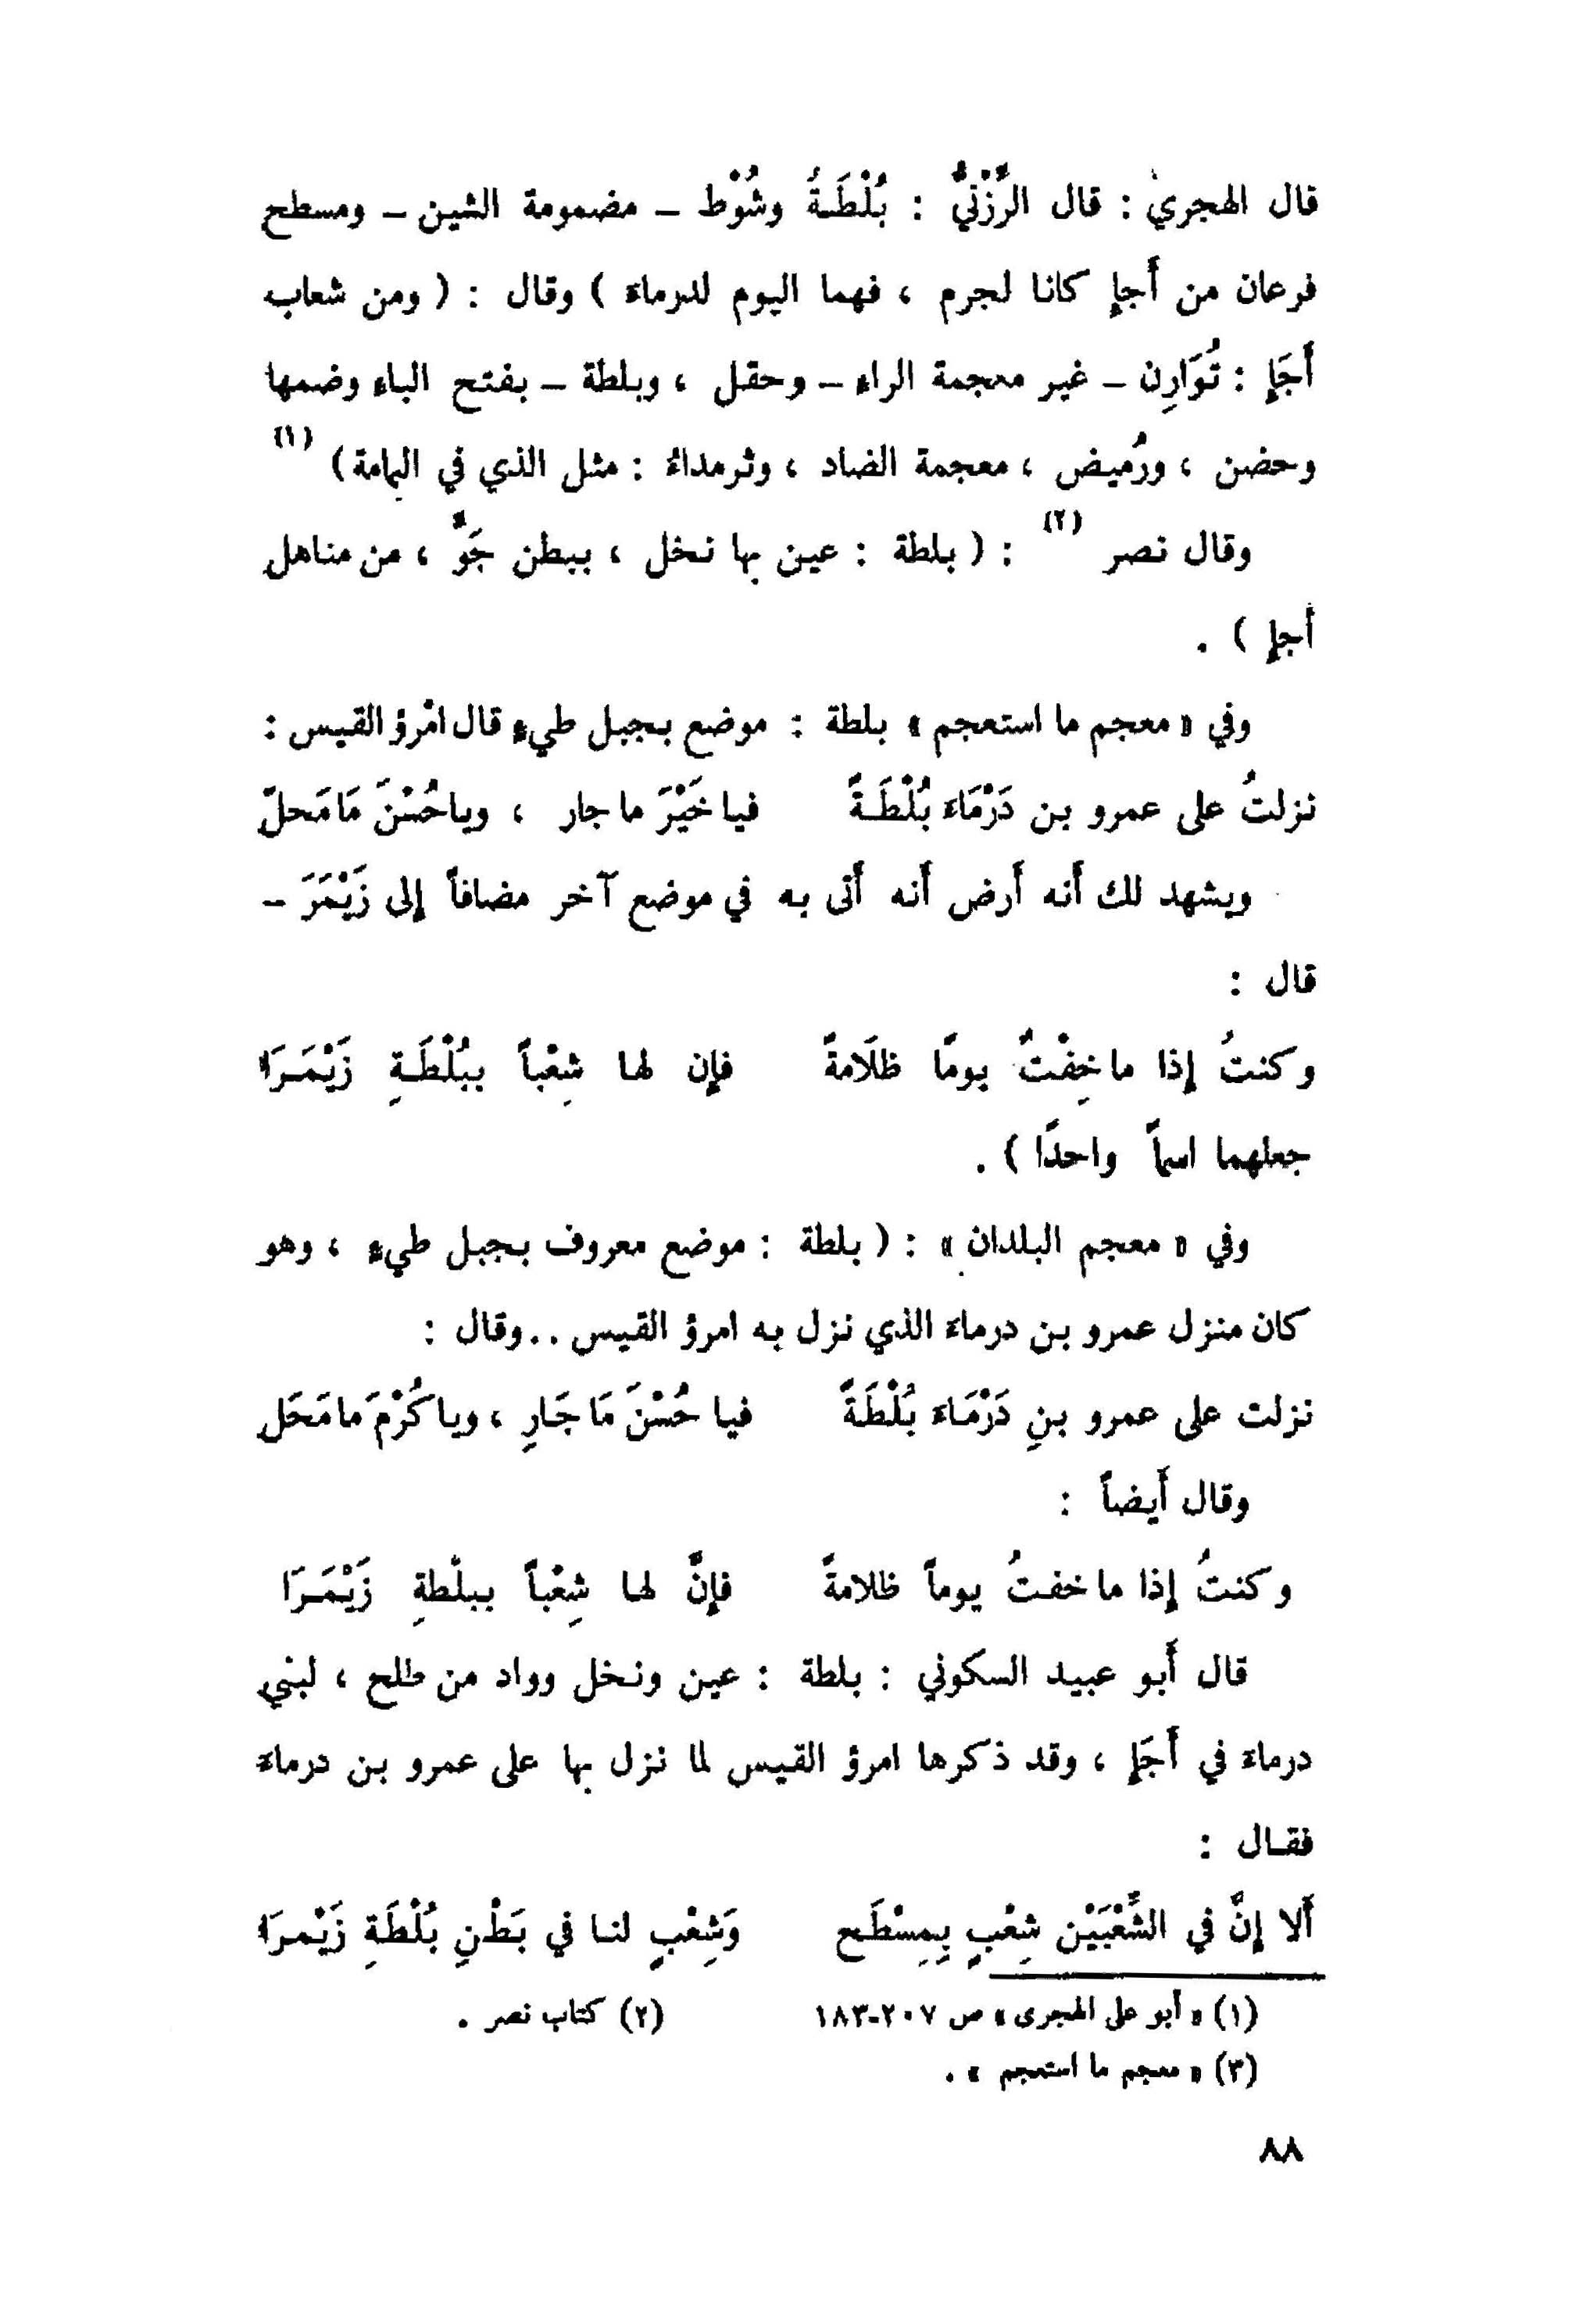 قال الهجريُ : قال الرَّزْنيُّ : بُلْطَةُ وشُوْط – مضمومة الشين – ومسطح
فرعان من أَجإٍ كانا لجرم ، فهما اليوم لدرماءَ ) وقال : ( ومن شعاب
أَجَإٍ : تُوَارِن – غير معجمة الراء – وحقل ، وبلطة – بفتح الباء وضمها
وحضن ، ورُميض ، معجمة الضاد ، وثرمداءُ : مثل الذي في اليمامة ) (١)
وقال نصر (٢) : ( بلطة : عين بها نخل ، ببطن جَوٍّ ، من مناهل
أجإٍ ) .
وفي « معجم ما استعجم » بلطة : موضع بجبل طيءٍ قال امْرؤ القيس :
نزلتُ على عمرو بن دَرْمَاءَ بُلْطَةً فيا خَيْرَ ما جار ، ويا حُسْنَ مَا مَحلّ
ويشهد لك أَنه أَرض أَنه أَتى به في موضع آخر مضافاً إلى زَيْمَرَ –
قال :
وكنتُ إذا ما خِفْتُ يومًا ظلَامةً فإن لها شِعْباً ببُلْطَةِ زَيْمَرَا
جعلهما اسماً واحدًا ) .
وفي « معجم البلدان » : ( بلطة : موضع معروف بجبل طيءٍ ، وهو
كان منزل عمرو بن درماءَ الذي نزل به امرؤ القيس .. وقال :
نزلت على عمرو بنِ دَرْمَاءَ بُلْطَةً فيا حُسْنَ مَا جَارِ ، ويا كُرْمَ ما مَحَل
وقال أَيضاً :
وكنتُ إذا ما خفتُ يوماً ظلامةً فإنَّ لها شِعْباً ببلْطةِ زَيْمَرَا
قال أَبو عبيد السكوني : بلطة : عين ونخل وواد من طلح ، لبني
درماءَ في أَجَإٍ ، وقد ذكرها امرؤ القيس لما نزل بها على عمرو بن درماءَ
فقال :
أَلا إنَّ في الشِّعْبَيْن شِعْبٍ بِمِسْطَح وَشِعْبٍ لنا في بَطْنِ بُلْطَةِ زَيْمرَا
(١) « أبو على الهجرى » ص ٢٠٧-١٨٣ (٢) كتاب نصر .
(٣) « معجم ما استعجم » .
٨٨